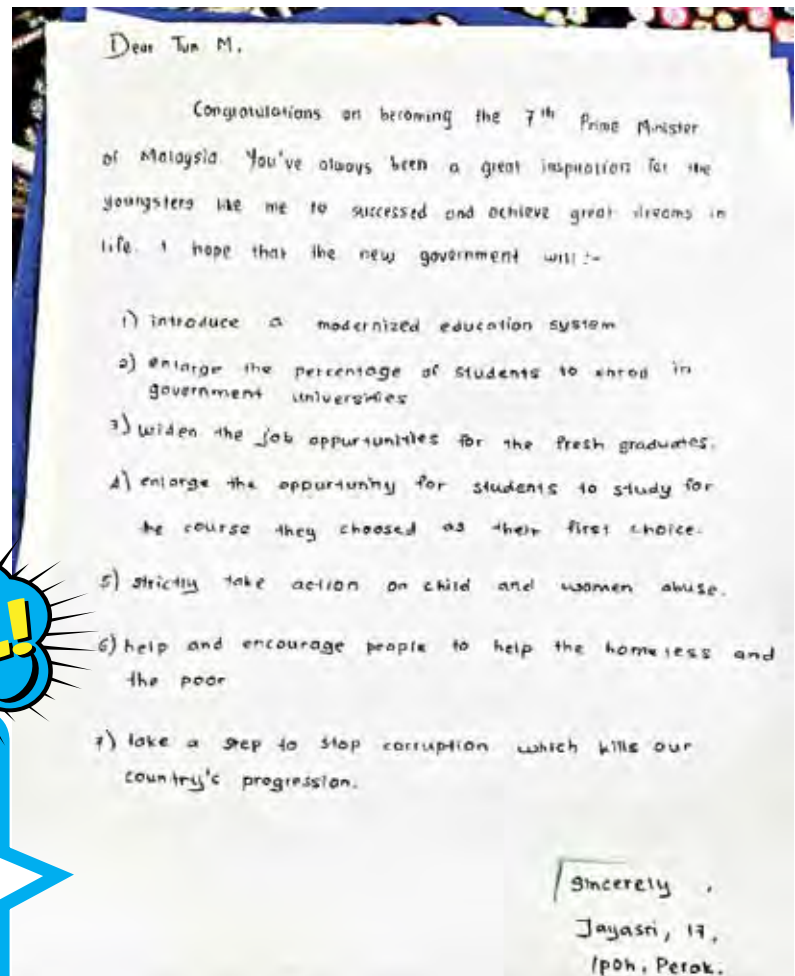 Dear Tun M,
Congratulations on becoming the 7th Prime Minister
of Malaysia. You've always been a great inspiration for the
youngsters like me to successed and achieve great dreams in
life. I hope that the new government will :-
1) introduce a modernized education system
2) enlarge the percentage of students to enrol in
government universities
3) widen the job oppurtunities for the fresh graduates.
4) enlarge the oppurtunity for students to study for
the course they choosed as their first choice.
5) strictly take action on child and women abuse.
6) help and encourage people to help the homeless and
the poor
7) take a step to stop corruption which kills our
country's progression.
Sincerely ,
Jayasri, 17,
Ipoh, Perak.